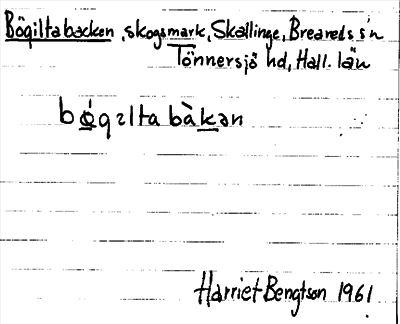 Bögiltabacken, skogsmark, Skällinge, Breareds s'n
Tönnersjö hd, Hall. län
bǿgɪlta bàkən
Harriet Bengtson 1961